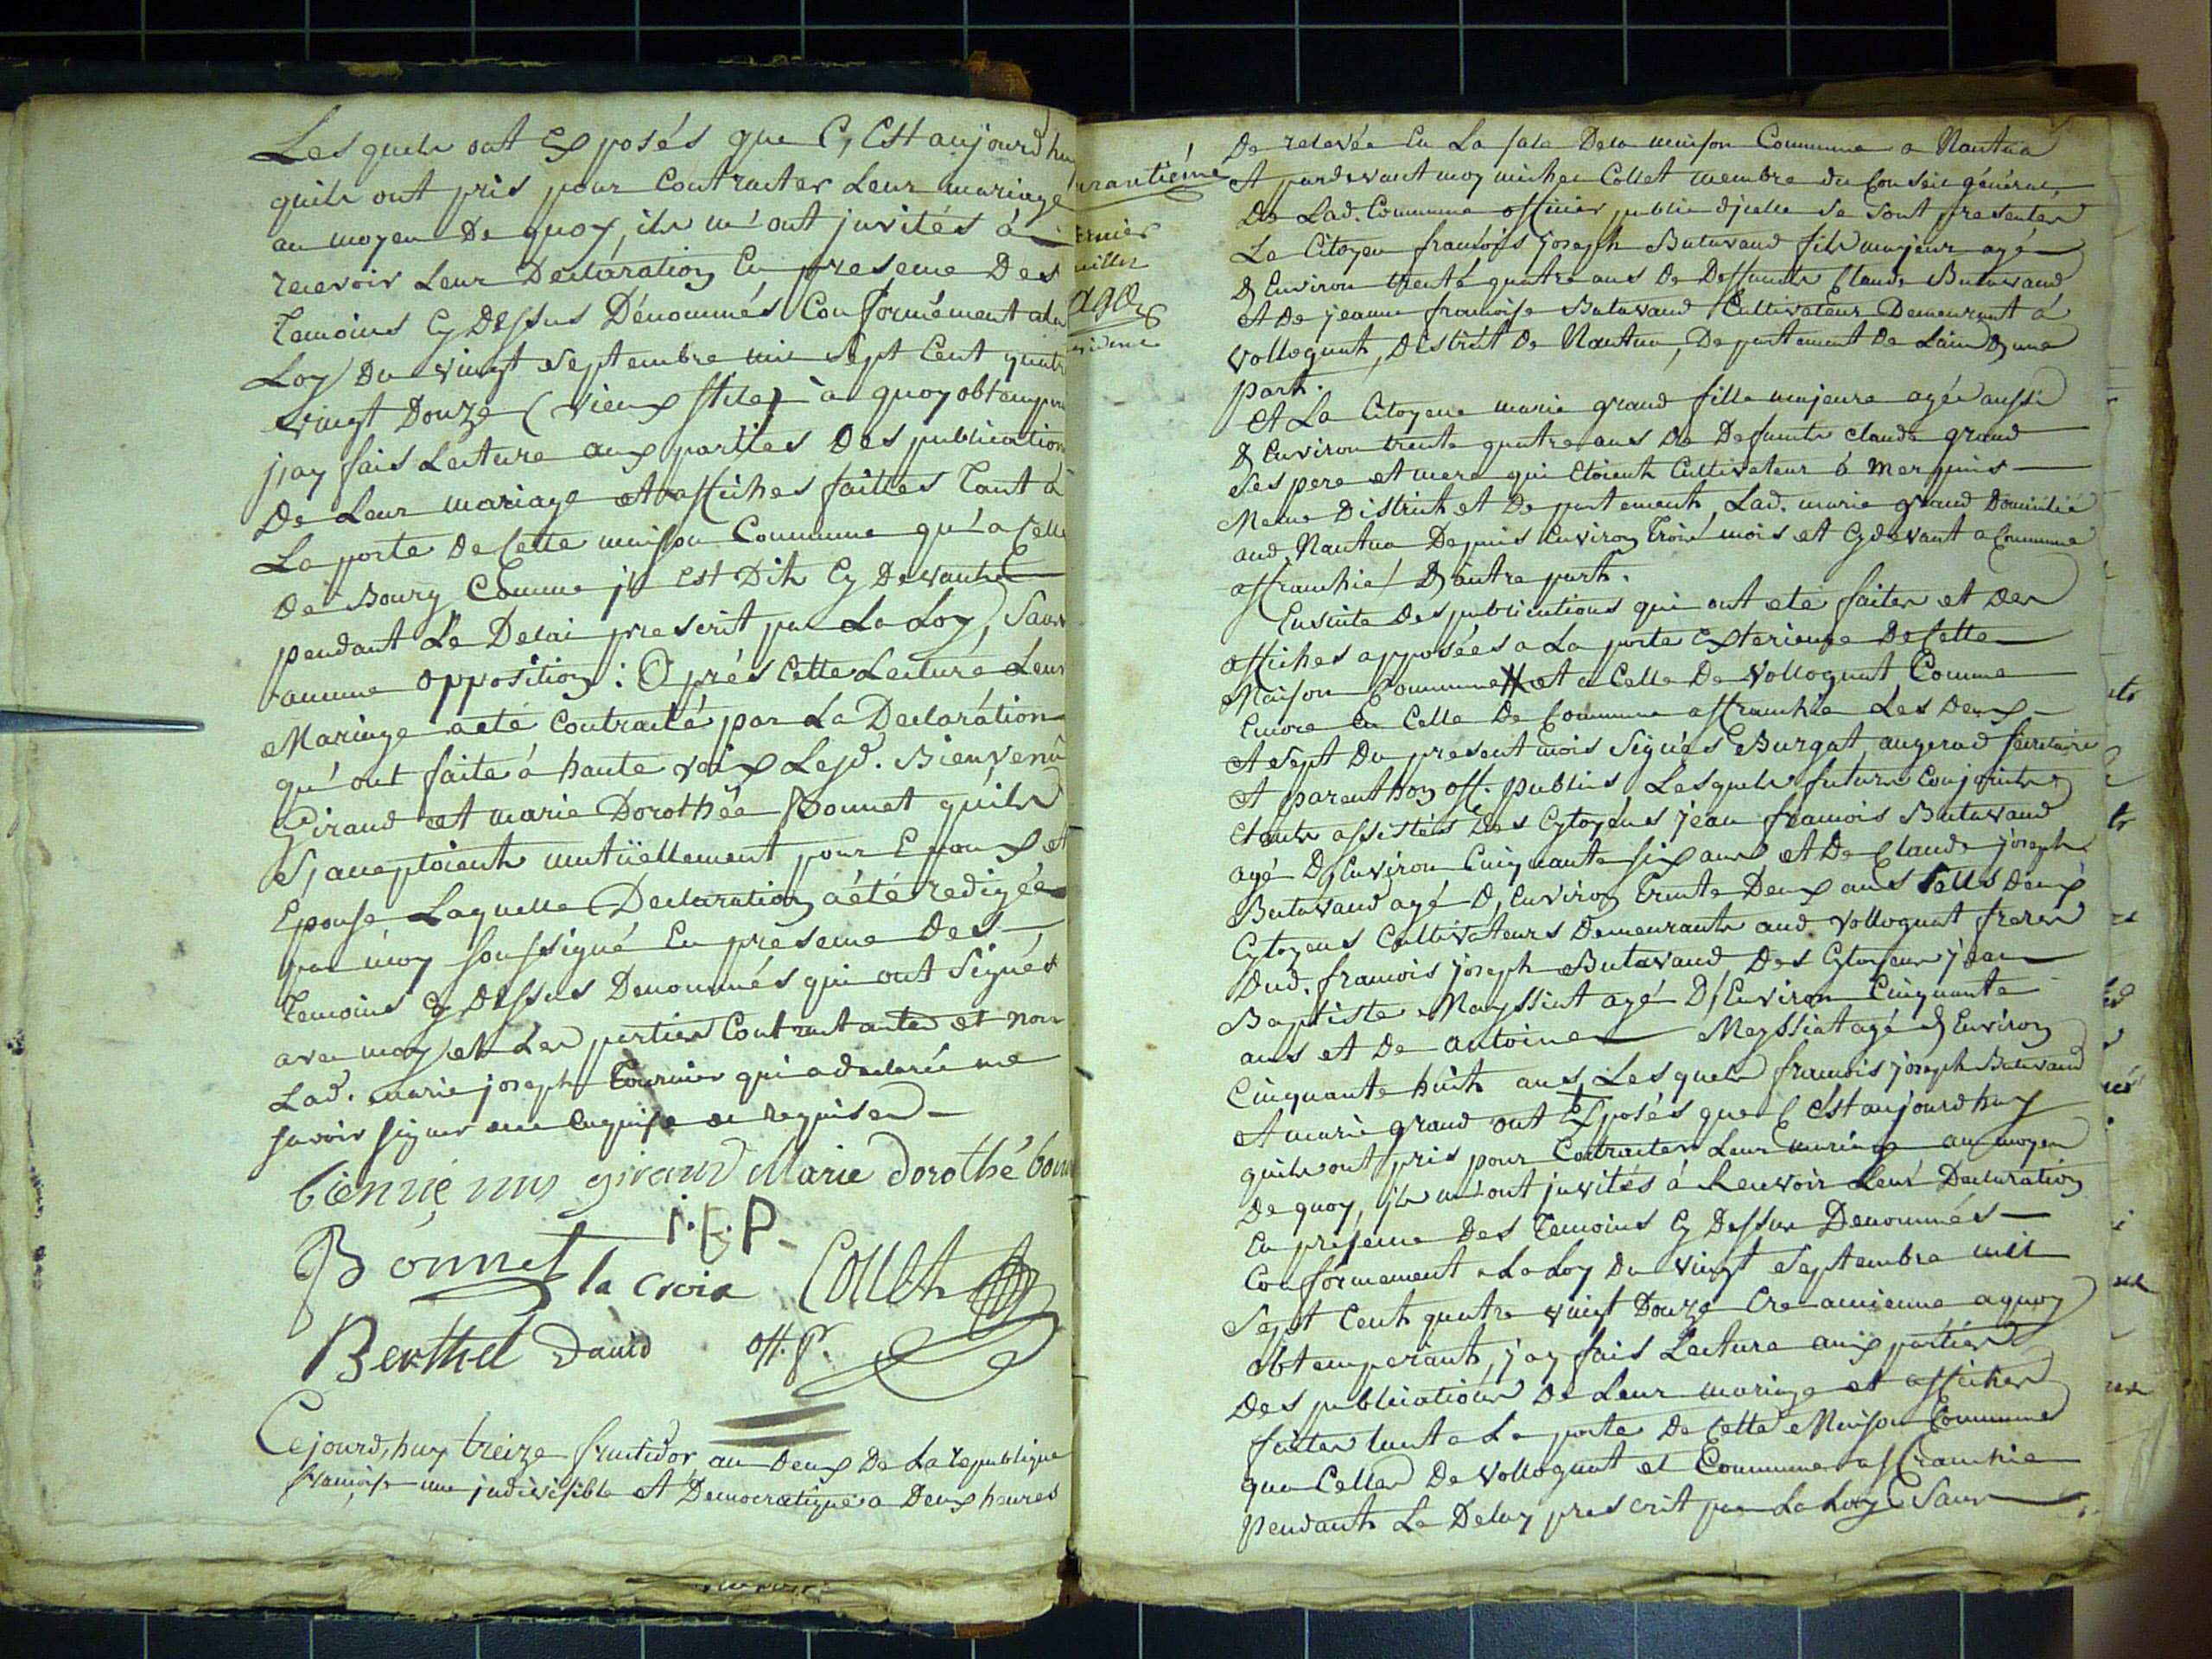 Lesquels ont Exposés que C, Est aujourd huy
quils ont pris pour Contracter Leur mariage
au moyen De quoy, ils m'ont jnvités à
recevoir Leur Declaration En presence Des
Temoins Cy Dessus Dénommés Conformément ala
Loy Du vingt Septembre mil Sept Cent quatre
vingt Douze (vieux stile) à quoy obtemperant
j'ay fais Lecture aux parties Des publications
De Leur mariage et affiches faittes Tant à
La porte De Cette maison Commune qu'a Celle
De Bourg Comme jl est Dit Cy Devant
pendant Le Delai prescrit par La Loy, Sans
aucune opposition : Après Cette Lecture Leur
Mariage a eté Contracté par La Declaration
qu'ont faite à haute voix Lesd. Bienvenu
Giraud et marie Dorothée Bonnet quils
S, acceptoient mutüellement pour Epoux et
Epouse, Laquelle Declaration a été redigée
par moy soussigné En presence Des
Temoins Cy Dessus Denommés qui ont Signés
avec moy et Les parties Contractantes et non
Lad. marie joseph Tournier qui a declaré ne
savoir signer de ce Enquise et requise
bienvenus giraud Marie dorothé bonnet
j.E.P.
Bonnet la croix Collet
Berthet David off. p.
Cejourd,huy treize fructidor an Deux De La republique
françoise une jndivisible et Démocratique a Deux heures
De relevée En La sale De la maison Commune a Nantua
Et pardevant moy michel Collet membre du Conseil général
De Lad. Commune officier public d'jcelle se sont presentés
Le Citoyen françois joseph Butavand fils majeur agé
D, Environ trente quatre ans De Deffunts Claude Butavand
et De jeanne françoise Butavand Cultivateur Demeurant à
vollognat, District De Nantua, Departement De Lain D, une
part.
Et La Citoyene marie grand fille majeure agée aussi
D, Environ trente quatre ans De Defunts claude grand
Ses pere et mere qui Etoient Cultivateur à merpuis
Meme District et Departement, Lad. marie grand Domicilié
aud. Nantua Depuis Environ Trois mois et Cydevant a Commune
affranchie D, autre part.
Ensuite Des publications qui ont eté faites et Des
affiches apposées a La porte Exterieure De Cette
Maison Commune et a Celle De Vollognat Comme
Encore En Celle De Commune affranchie Les Deux
et Sept Du present mois Signés Burgat, augerad secretaire
et parenthon off. publics, Lesquels futurs Conjoints
Etants assistés Des Cytoyens jean françois Butavand
agé D, Environ Cinquante six ans et De Claude joseph
Butavand agé D, Environ Trente Deux ans Tous deux
Cytoyens Cultivateurs Demeurants aud. Vollognat freres
Dud. françois joseph Butavand Des Cytoyens jean
Baptiste Mayssiat agé D, Environ Cinquante
ans et De antoine Meyssiat agé D, Environ
Cinquante huit ans, Lesquels françois joseph Butavand
et marie grand ont Exposés que C Est aujourdhuy
quils ont pris pour Contracter Leur mariage au moyen
De quoy, jls m'ont jnvités à Recevoir Leur Declaration
En presence Des Temoins Cy Dessus Denommés
Conformement a La Loy Du vingt Septembre mil
Sept Cent quatre vingt Douze Ere ancienne a quoy
obtemperant, j'ay fais Lecture aux parties
Des publications De Leur mariage et affiches
faites tant a La porte De Cette Maison Commune
qua Celles De Vollognat et Commune affranchie
pendant Le Delay prescrit par La Loy Sans